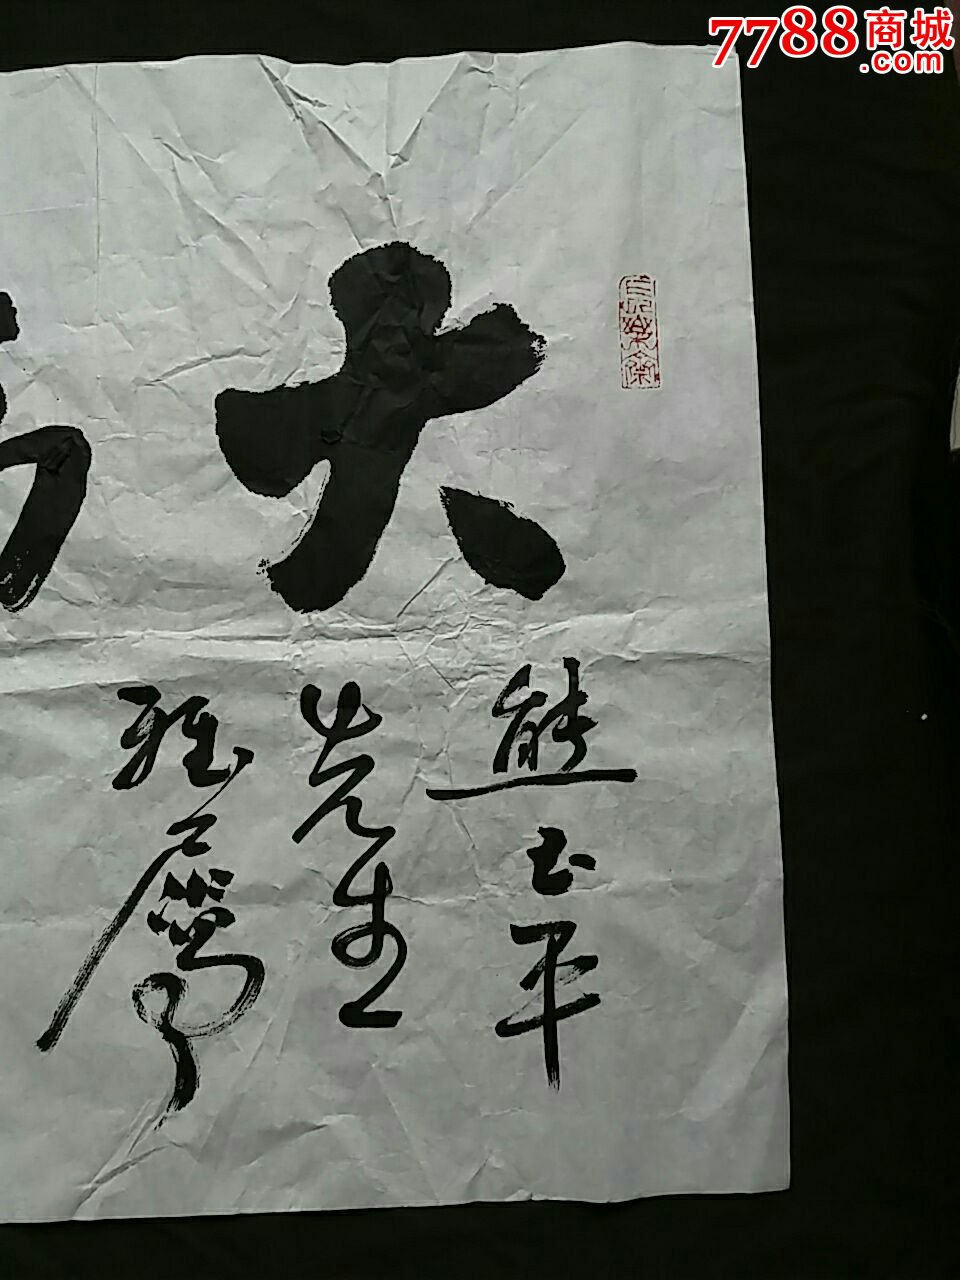 7788商城
.com
大
熊玉平
先生
雅属